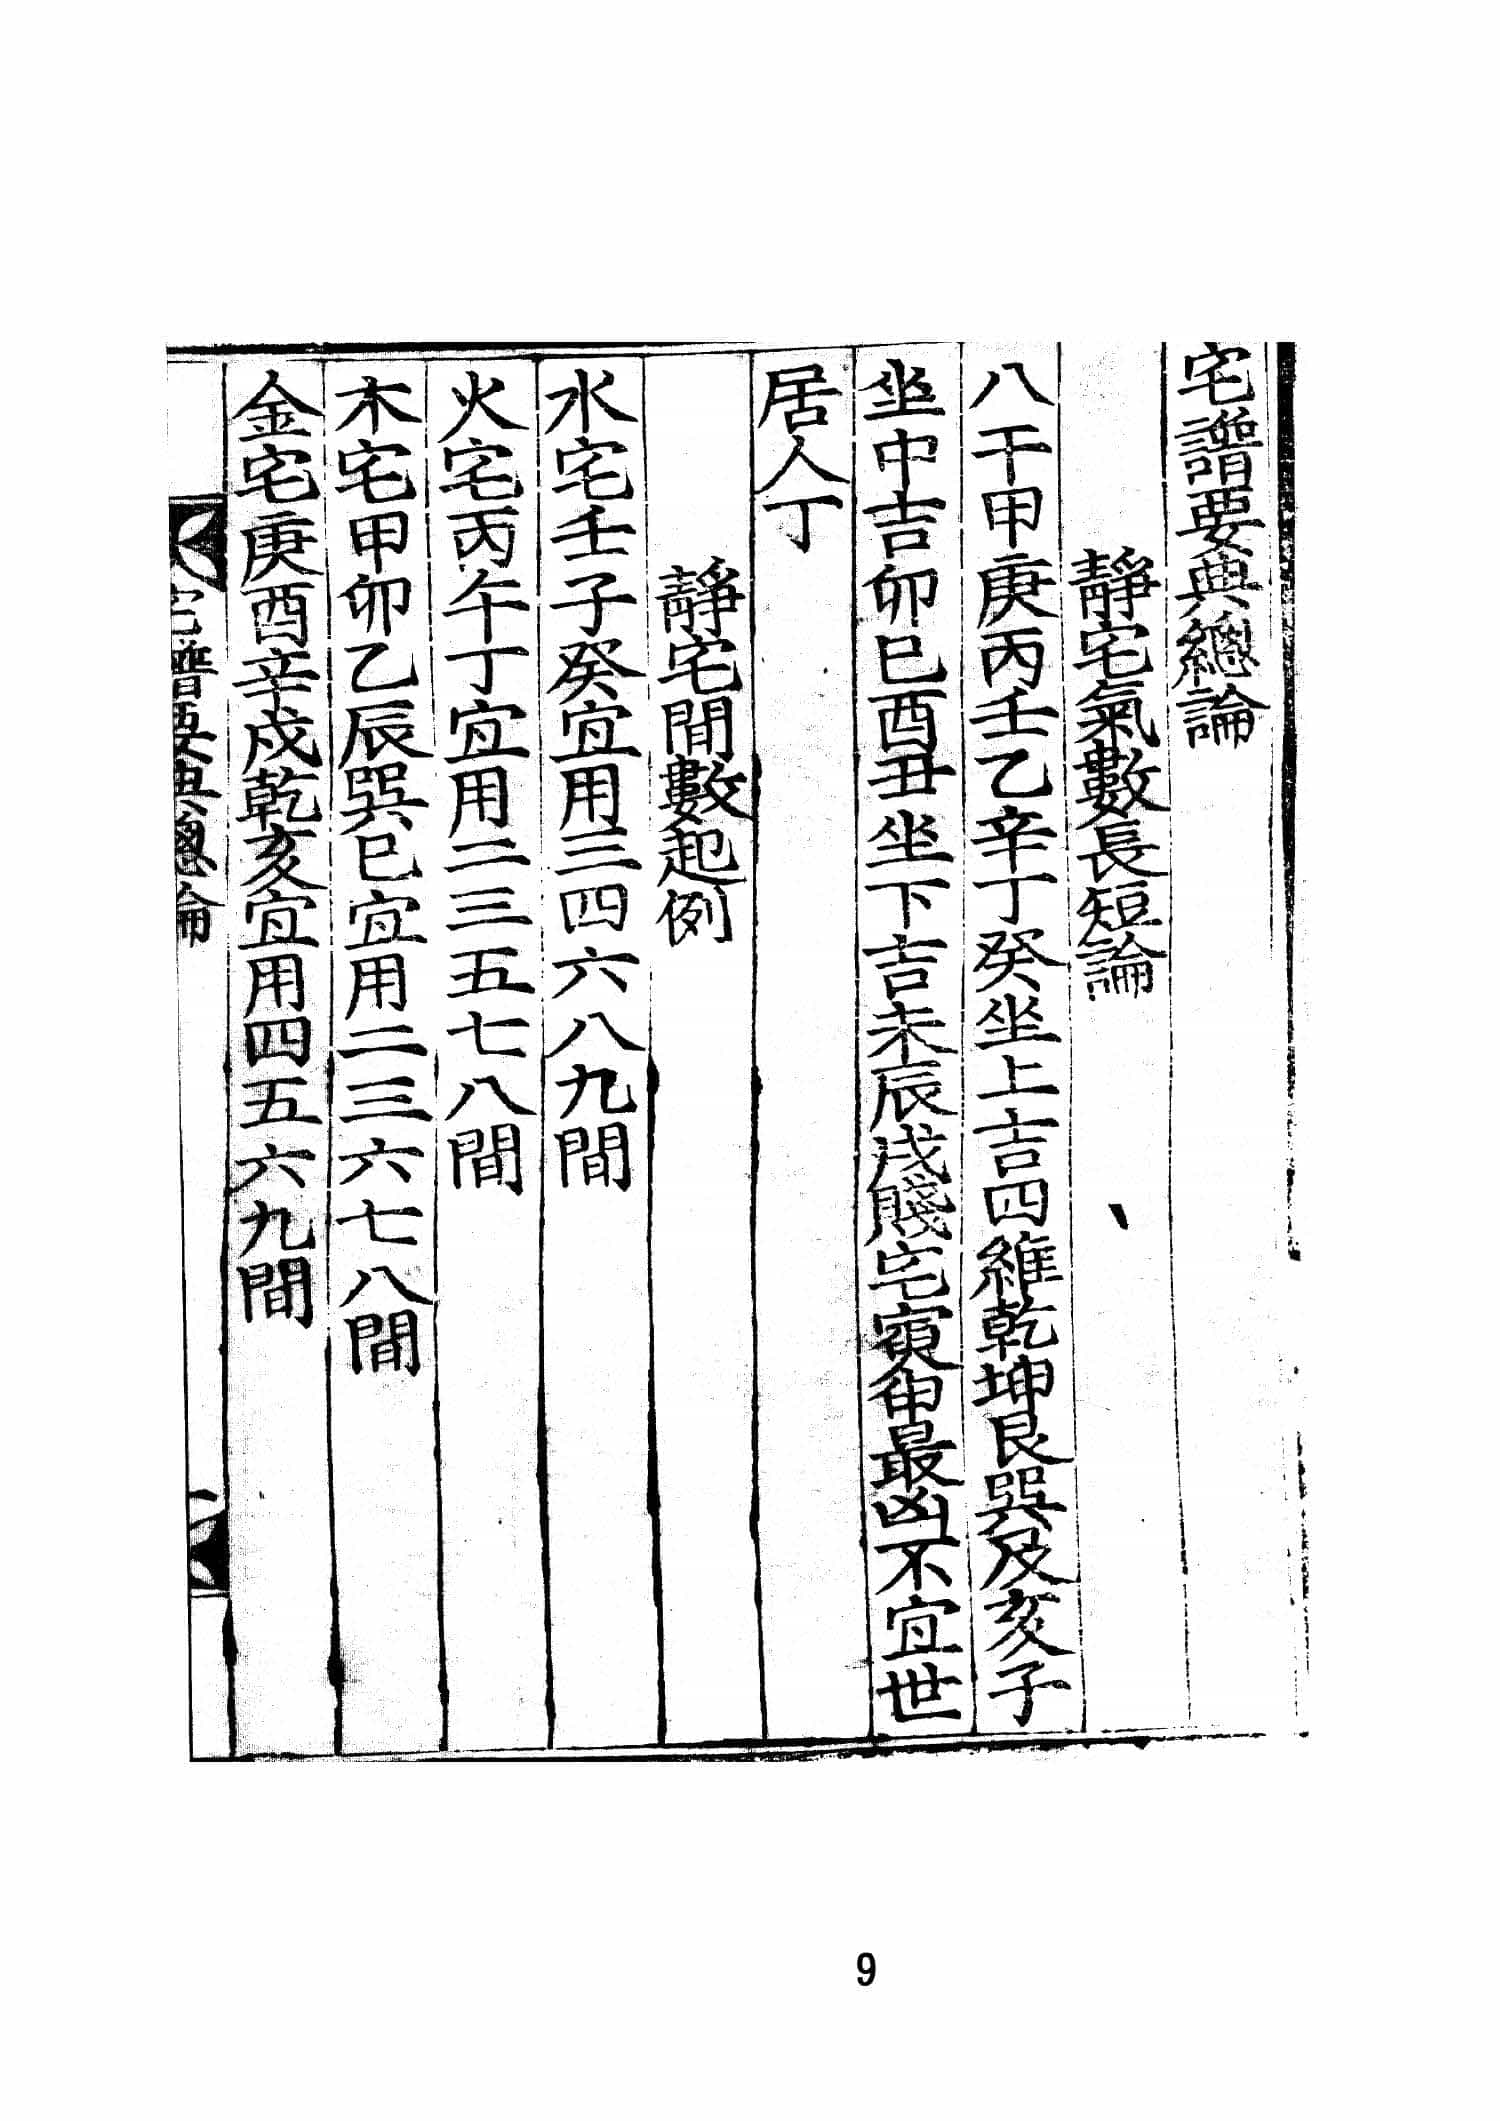 宅譜要典總論
靜宅氣數長短論
八干甲庚丙壬乙辛丁癸坐上吉四維乾坤艮巽及亥子
坐中吉卯巳酉丑坐下吉未辰戌賤宅寅申最凶不宜世
居人丁
靜宅間數起例
水宅壬子癸宜用三四六八九間
火宅丙午丁宜用二三五七八間
木宅甲卯乙辰巽巳宜用二三六七八間
金宅庚酉辛戌乾亥宜用四五六九間
宅譜要典總論
9